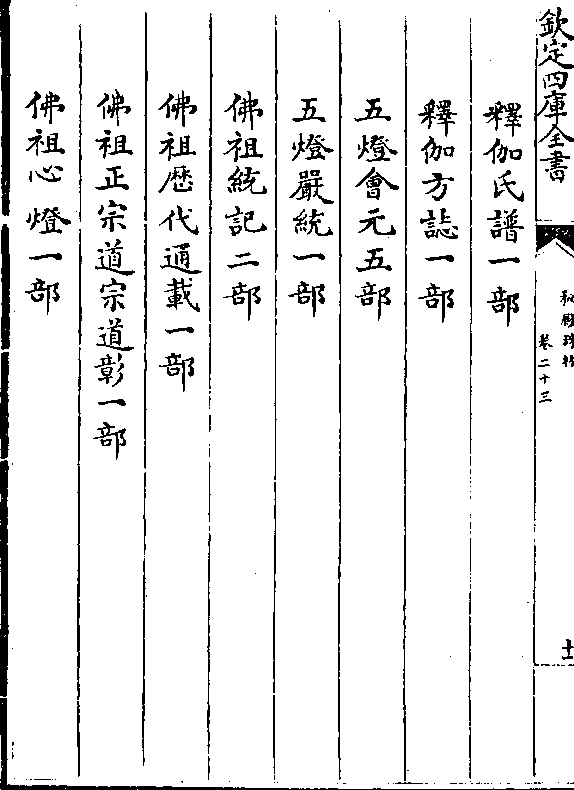 欽定四庫全書
秘殿珠林
卷二十三
釋伽氏譜一部
釋伽方誌一部
五燈會元五部
五燈嚴統一部
佛祖統記二部
佛祖歷代通載一部
佛祖正宗道宗道彰一部
佛祖心燈一部